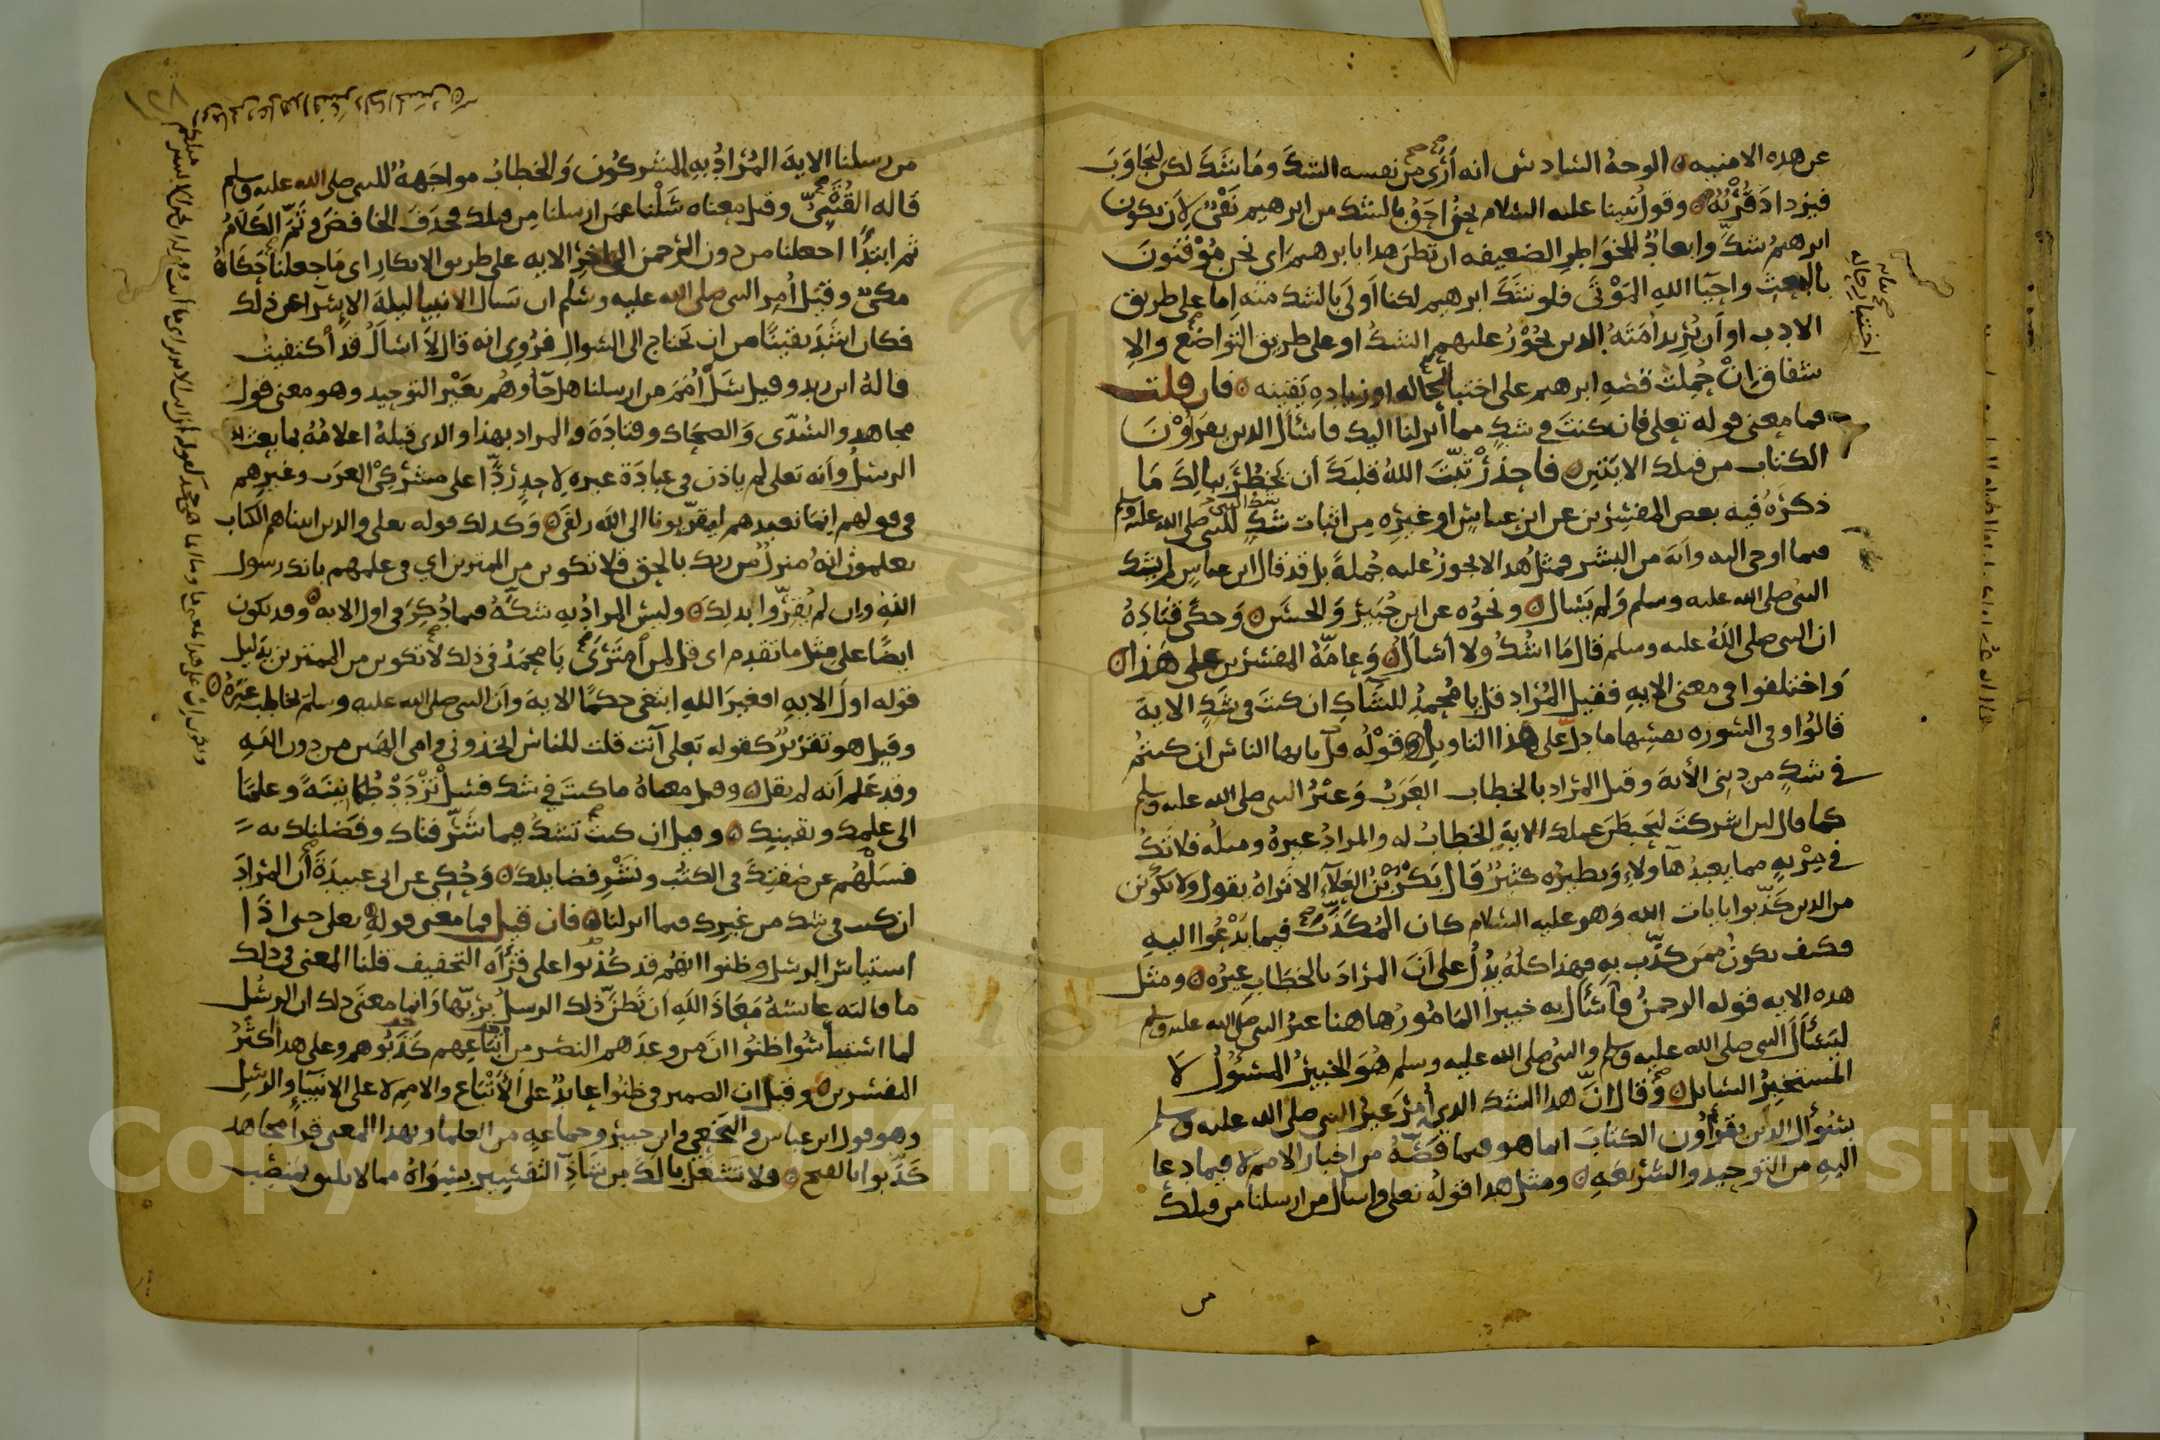 عن هذه الامنيه ۞ الوجهُ السّادسُ انه أرَى من نفسه الشكَّ ومَا شَكَّ لكن ليُجَاوَبَ
فيزدادَ قُرْبُهُ ۞ وقولُ نبينا عليه السّلام نحنُ احقُّ بالشك من ابرهيم نَفْيٌ لِأن يكون
ابرهيمُ شكَّ وابعادٌ للخَوَاطِرِ الضعيفه ان تظن هذا بابرهيم اى نحن مُوْقِنُونَ
بالبعث واحيَا اللهِ المَوْتَى فلو شَكَّ ابرهيم لكنا اَولَى بالشك منه اِما على طريق
الادب او أن يُريد اُمَتَهُ الذين يَجُوْزُ عليهم الشكُّ او على طريق التّواضُع والاِ
شفاق اِنْ حُمِلت قصّهِ ابرهيم على اختبارِ حَالِه او زيادهِ يَقِينه ۞ فان قلت
فما معنى قوله تعلى فان كنتَ فى شكٍ مما أنزلنا اليك فاسْأل الذين يقرَاوُنَ
الكتابَ من قبلك الايَتَينِ ۞ فاحذرْ ثَبّتَ اللهُ قلبَكَ أن يَخطُرَ ببالِكَ مَا
ذكرَهُ فيه بعض المفسّرين عن ابن عباسٍ او غيرِه مِن اثبات شكٍ للنبى صلى الله عليه وسلم
فيما اوحى اليه وأنه من البشر فمثلُ هذا لا يجوزُ عليه جُملةً بل قد قال ابن عباسٍ لم يشك
النبىُ صلى الله عليه وسلم وَلم يَسْال ۞ ونَحوُه عن ابن جُبَيرٍ وَالحسَن ۞ وَحكَى قتَادَهُ
ان النبى صلى اللهُ عليه وسلم قال مَا اشُكُّ ولا أسْاَل ۞ وَعامّهُ المفسّرين على هَذا ۞
وَاختلفوا فى معنى الايهِ فقيل المُرَاد قل يا مُحمدُ للشّاكِ ان كنتَ فى شَكٍ الايهَ
قالُوا وفى السّوره نَفسِها ما دلّ على هذا التاويل ۞ وَقوْلُه قل يا يها الناسُ ان كنتُم
فى شكٍ من دينى الأيهَ وقيل المُراد بالخطاب العَرَبُ وَغَيْرُ النبى صلى الله عليه وسلم
كما قال لين اشركتَ ليَحبَطنّ عملك الايهِ الخِطابُ له والمرادُ غيرهُ ومثلُه فلا تكُ
فى مِرْيهٍ مما يعبدُ هآولاءِ وَنظيرُه كثيرٌ قال بَكْرُ بْنُ العَلآءِ الا تَراهُ يقول ولا تكونن
من الذين كذّبوا بايات الله وَهو عليه السّلام كان المُكذَّبَ فيما يَدْعُوا اليهِ
فكيف يكونُ ممَن كذّب بهِ فهذا كلهُ يدُلُ على أنّ المرادَ بالخطابِ غيرُه ۞ ومثل
هذه الايه قوله الرحمنُ فاسْئَال به خبيرا المَامُورُ ها هنا غيرُ النبى صلى الله عليه وسلم
ليَسْئَالَ النبى صلى الله عليه وسلم والنبىُ صلى الله عليه وسلم هُوَ الخبيرُ المسْئُولُ لا
المستَخبِرُ السّايل ۞ وَقال انّ هذا الشكّ الذى أُمِرَ غيرُ النبى صلى الله عليه وسلم
بسُؤال الذين يَقرَاوُن الكتابَ انما هو فيما قَصّهُ من اخبار الامم لا فيما دعا
اليهِ من التوحيد والشّريعَهِ ۞ ومثل هذا قولهُ تعلى واسال من ارسلنا من قبلك
صح
اختبار حاله
من
من رسلنا الايهَ المُرَادُ به المشركُون وَالخطابُ مواجَههُ للنبى صلى الله عليه وسلم
قاله القُتَيْبِيّ وقيل معناه سَلْنا عمّن ارسلنا مِن قبلك فحُذِفَ الخافضُ وتَمّ الكَلامُ
ثم ابتدأ اجعلنا من دون الرّحمن الى اخِرِ الايه على طريق الانكارِ اى مَا جعلنا حَكَاهُ
مكىٌ وقيل اُمِرَ النبى صلى الله عليه وسلم ان سَال الانبيا ليلةَ الاِسْرآ عن ذلك
فكان اشَدّ يقينًا من ان يَحتاج الى السّوال فرُوِى انه قال لا أسْاَلُ قد اَكتفيتُ
قالهُ ابن زيدٍ وقيل سَلْ اُمَمَ من ارسلنا هل جآوهُم بغَيْرِ التوحيد وهو معنى قول
مجاهد والسُدّى وَالضحَاكِ وقتادَهَ وَالمراد بهذا والذى قبلهُ اعلامُهُ بما بعث به
الرسُل وأنه تعلى لم ياذن فى عبادَة غيره لِاحدٍ رَدًّا على مُشْرِكِى العَرَب وغيرهم
فى قولهم اِنمَا نعبدهم ليقرّبونا الى اللهِ زلفى ۞ وَكذلك قوله تعلى والذين اتيناهم الكتاب
يعلمون انهُ منزلٌ من ربك بالحق فلا تكونن من الممترين اي فى علمهم بانك رسول
اللهِ وان لم يُقِرّوا بذلك ۞ وليسَ المرادُ به شكّهُ فيما ذُكِرَ فى اول الايه ۞ وقد يكون
ايضًا على مِثل ما تقدم اى قل لمن امتَرَى يَا محمدُ فى ذلك لا تكونن من الممترين بدَليل
قوله اولَ الايهِ افغيرَ اللهِ ابتغى حكمًا الايهَ وأن النبى صلى الله عليه وسلمَ يخاطب غيرَهُ ۞
وقيل هو تقرَيرٌ كقوله تعلى أآنت قلت للناس اتخذونى وامى الهَين من دون اللهِ
وقد علم اَنه لم يقل ۞ وقيل معناهُ ما كنتَ فى شك فسْئَلْ تَزْدَدْ طُمَانِينَةً وعلمًا
الى علمِك ويقينِك ۞ وقيل ان كنتَ تشكُ فيما شَرّفناك وفضلناك به
فسَلْهُم عن صفتِكَ فى الكتُب ونَشْرِ فضايلك ۞ وَحُكِى عن ابى عبيدَةَ أن المرادَ
ان كنت فى شك من غيرك فيما انزلنا ۞ فان قيل فما معنى قولهِ تعلى حتى اذا
استياسَ الرسُل وظنوا انهُم قد كُذِبوا على قرَأهِ التخفيف قلنا المعنى فى ذلك
ما قالته عايشهُ مَعَاذَ اللهِ اَن تَظنّ ذلك الرسلُ بِرَبّها وَانما معنى ذلك ان الرسُل
لما استياسُوا ظنُوا انّ من وعدَهم النصْر من أَتبَاعِهم كَذّبُوهم وعلى هذا أكثَرُ
المفسّرين ۞ وقيل ان الضمير فى ظنوا عايدٌ على الأَتْبَاع والامم لا على الانبيَآءِ والرسُل
وهو قول ابن عباس والنخَعِى وابن جبيرٍ وجماعهٍ من العلمآ وبهذا المعنى قرأ مجاهد
كَذَبوا بالفتح ۞ فلا تشغَلْ بالكَ مِن شَاذِّ التّفسِير بسِوَاهُ مما لا يليق بمَنصِب
Copyright © King Saud University